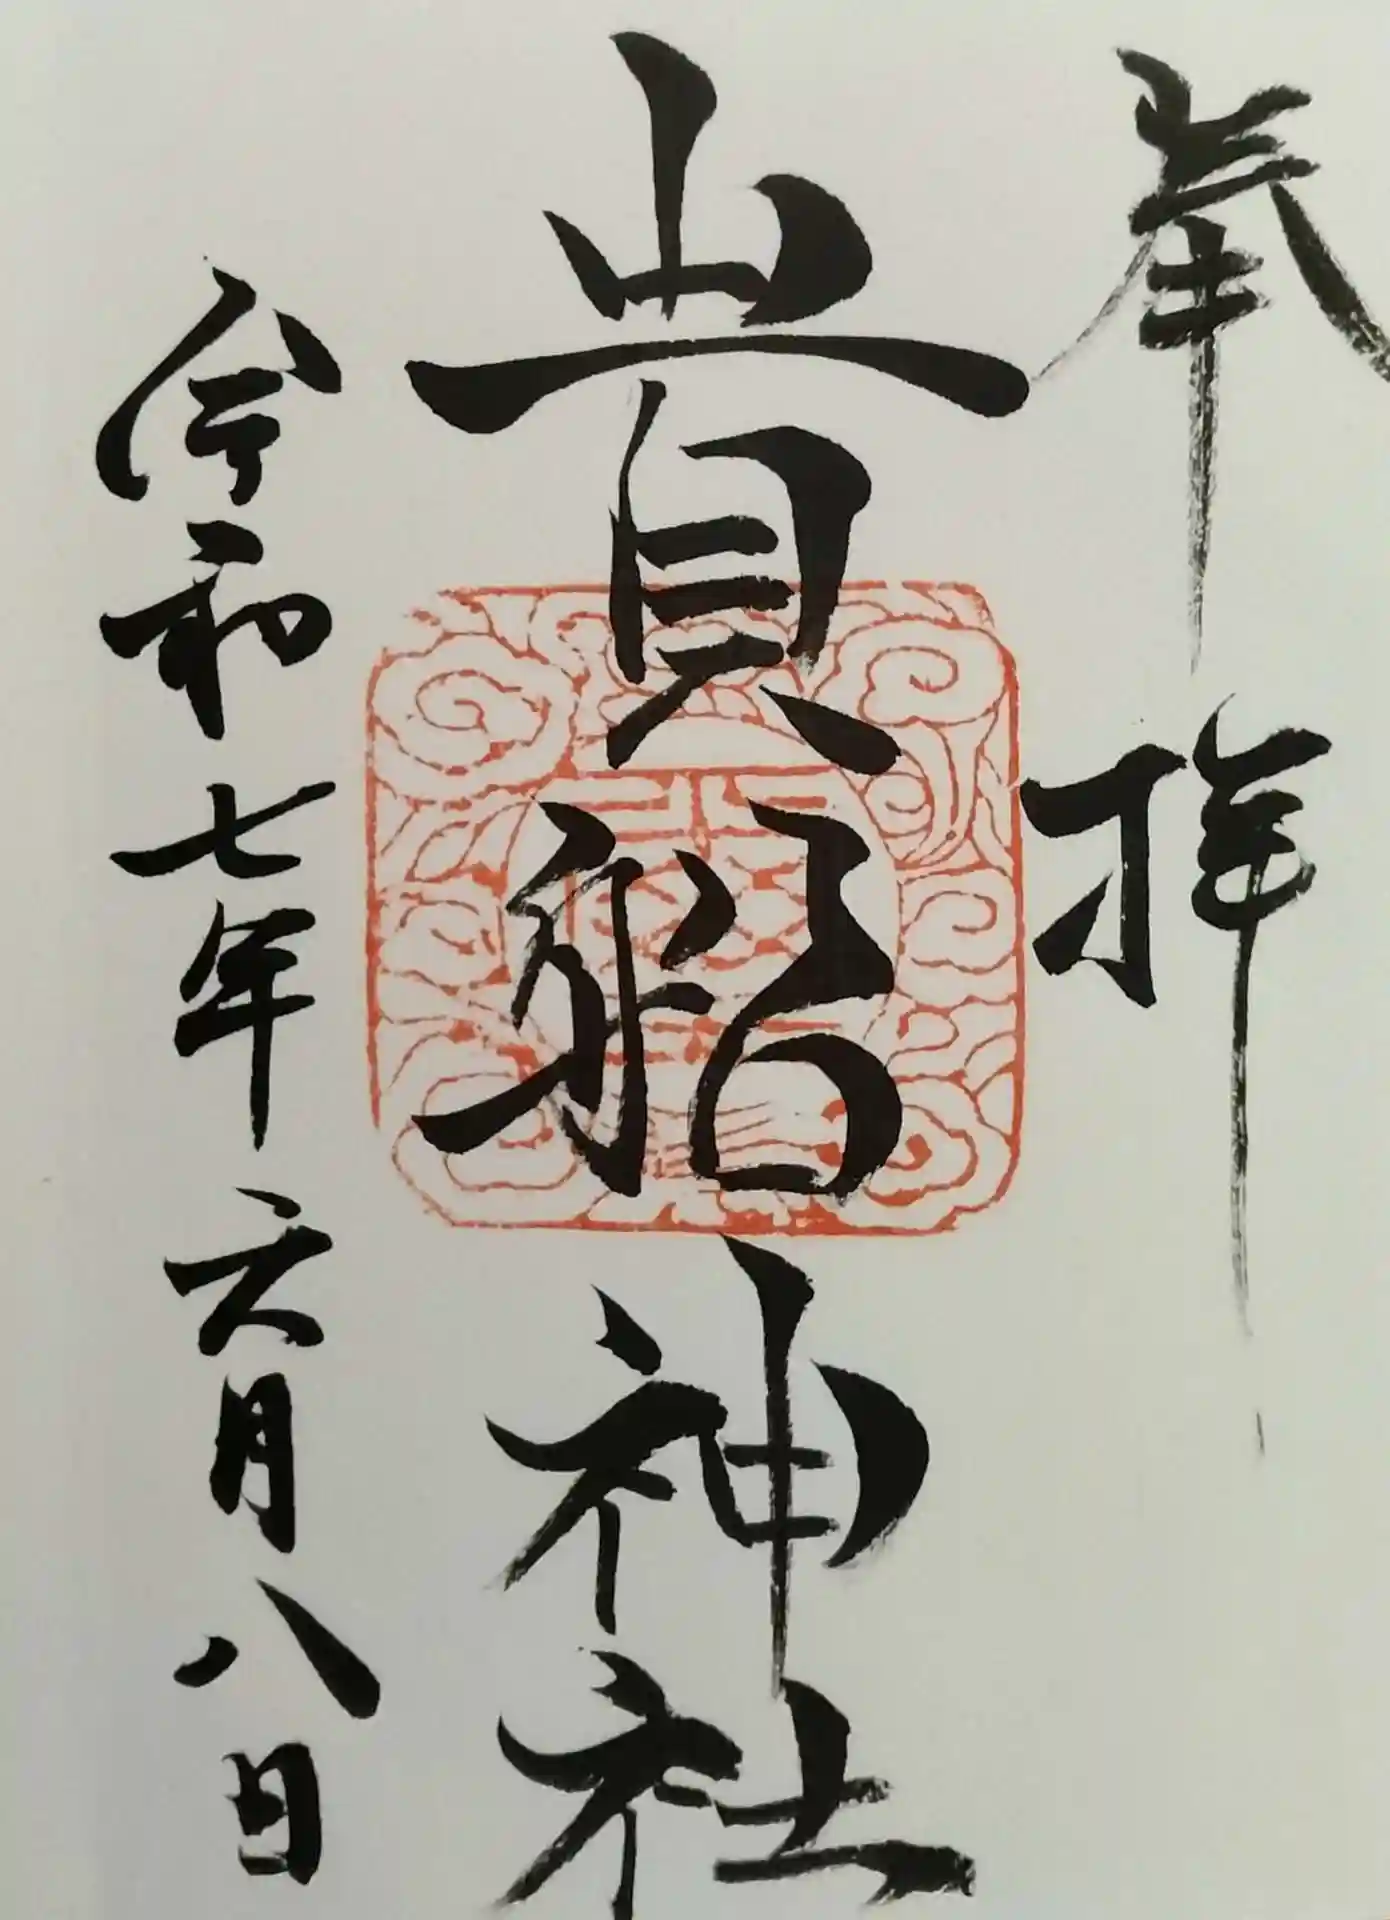 奉拝
貴船神社
令和七年六月八日